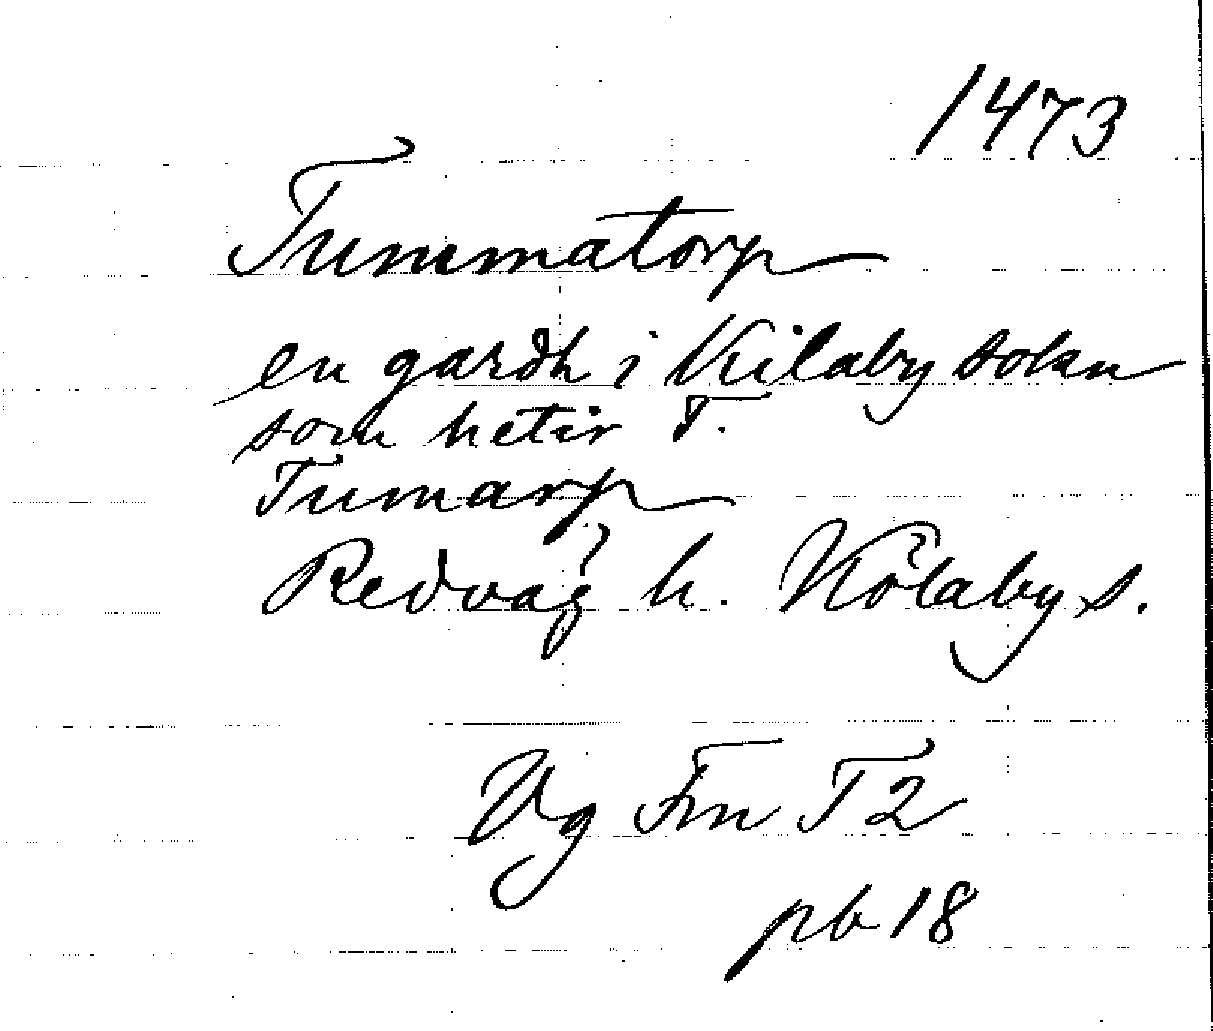 1473
Tummatorp
en gardh i Kilaby sokn
som hetir T.
Tumarp
Redväg h. Kölaby s.
Vg Fm T2
pb 18